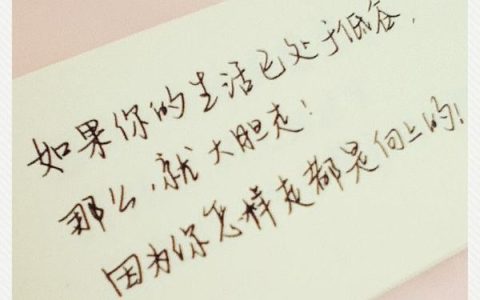 如果你的生活已处于低谷，
那么，就大胆走！
因为你怎样走都是向上的！